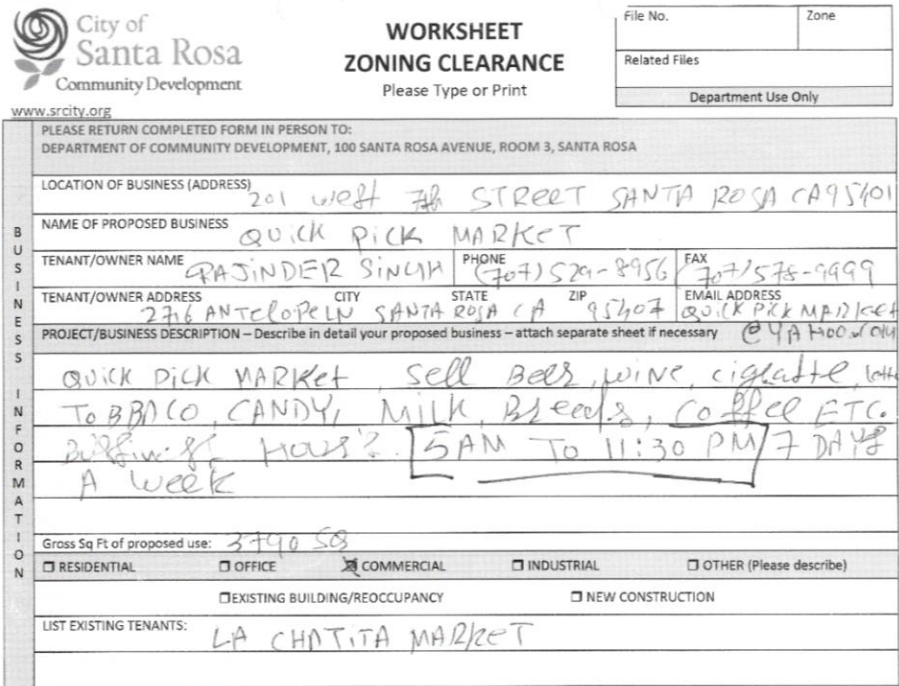 City of
Santa Rosa
Community Development
www.srcity.org
WORKSHEET
ZONING CLEARANCE
Please Type or Print
File No.
Zone
Related Files
Department Use Only
PLEASE RETURN COMPLETED FORM IN PERSON TO:
DEPARTMENT OF COMMUNITY DEVELOPMENT, 100 SANTA ROSA AVENUE, ROOM 3, SANTA ROSA
BUSINESS INFORMATION
LOCATION OF BUSINESS (ADDRESS) 201 west 7th STREET SANTA ROSA CA 95401
NAME OF PROPOSED BUSINESS QUICK PICK MARKET
TENANT/OWNER NAME RAJINDER SINGH PHONE (707) 529-8956 FAX 707/578-9999
TENANT/OWNER ADDRESS CITY STATE ZIP EMAIL ADDRESS
2716 ANTelope LN SANTA ROSA CA 95407 QUICK PICK MARKET
PROJECT/BUSINESS DESCRIPTION – Describe in detail your proposed business – attach separate sheet if necessary @ YAHOO.COM
QUICK PICK MARKet, Sell Beer, wine, cigratte,
ToBBACO, CANDY, MILK, Breeds, Coffee ETC.
Hours. 5AM To 11:30 PM 7 DAYS
A week
Gross Sq Ft of proposed use: 3790 SQ
RESIDENTIAL OFFICE COMMERCIAL INDUSTRIAL OTHER (Please describe)
EXISTING BUILDING/REOCCUPANCY NEW CONSTRUCTION
LIST EXISTING TENANTS: LA CHATITA MARKET